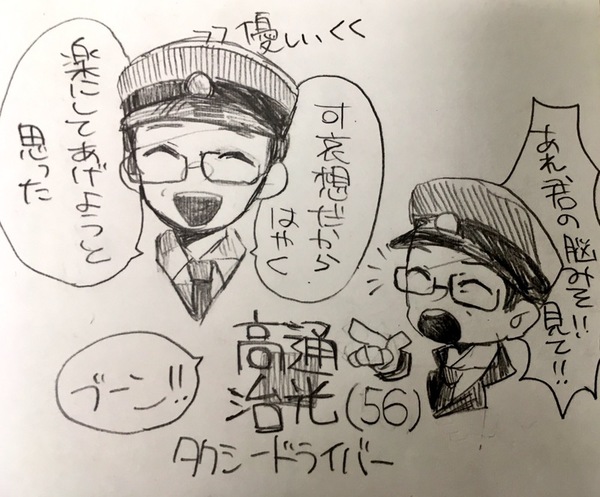 優しい
可哀想だから
はやく
楽にしてあげようと
思った
あれ、君の脳みそ!!
見て!!
ブーン!!
高通
治光(56)
タクシードライバー